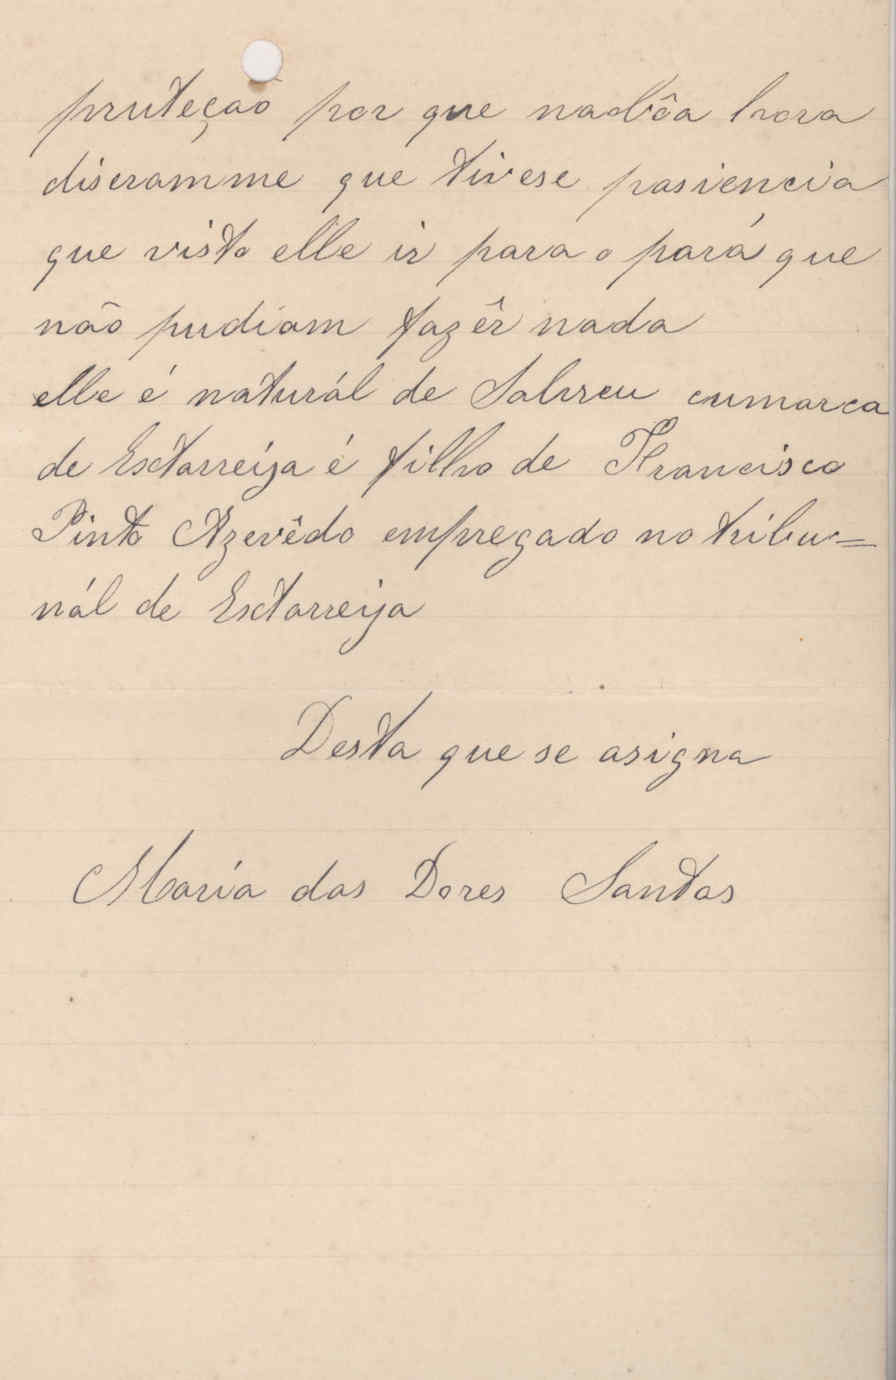 pruteçaõ por que nadbôa hora
diseramme que tivese pasiencia
que visto elle ir para o pará que
não pudiam fazêr nada
elle é naturál de Salreu cumarca
de Esctarreija é filho de Francisco
Pinto Azevêdo empregado no tribu=
nál de Esctarreija
Desta que se asigna
Maria das Dores Santos